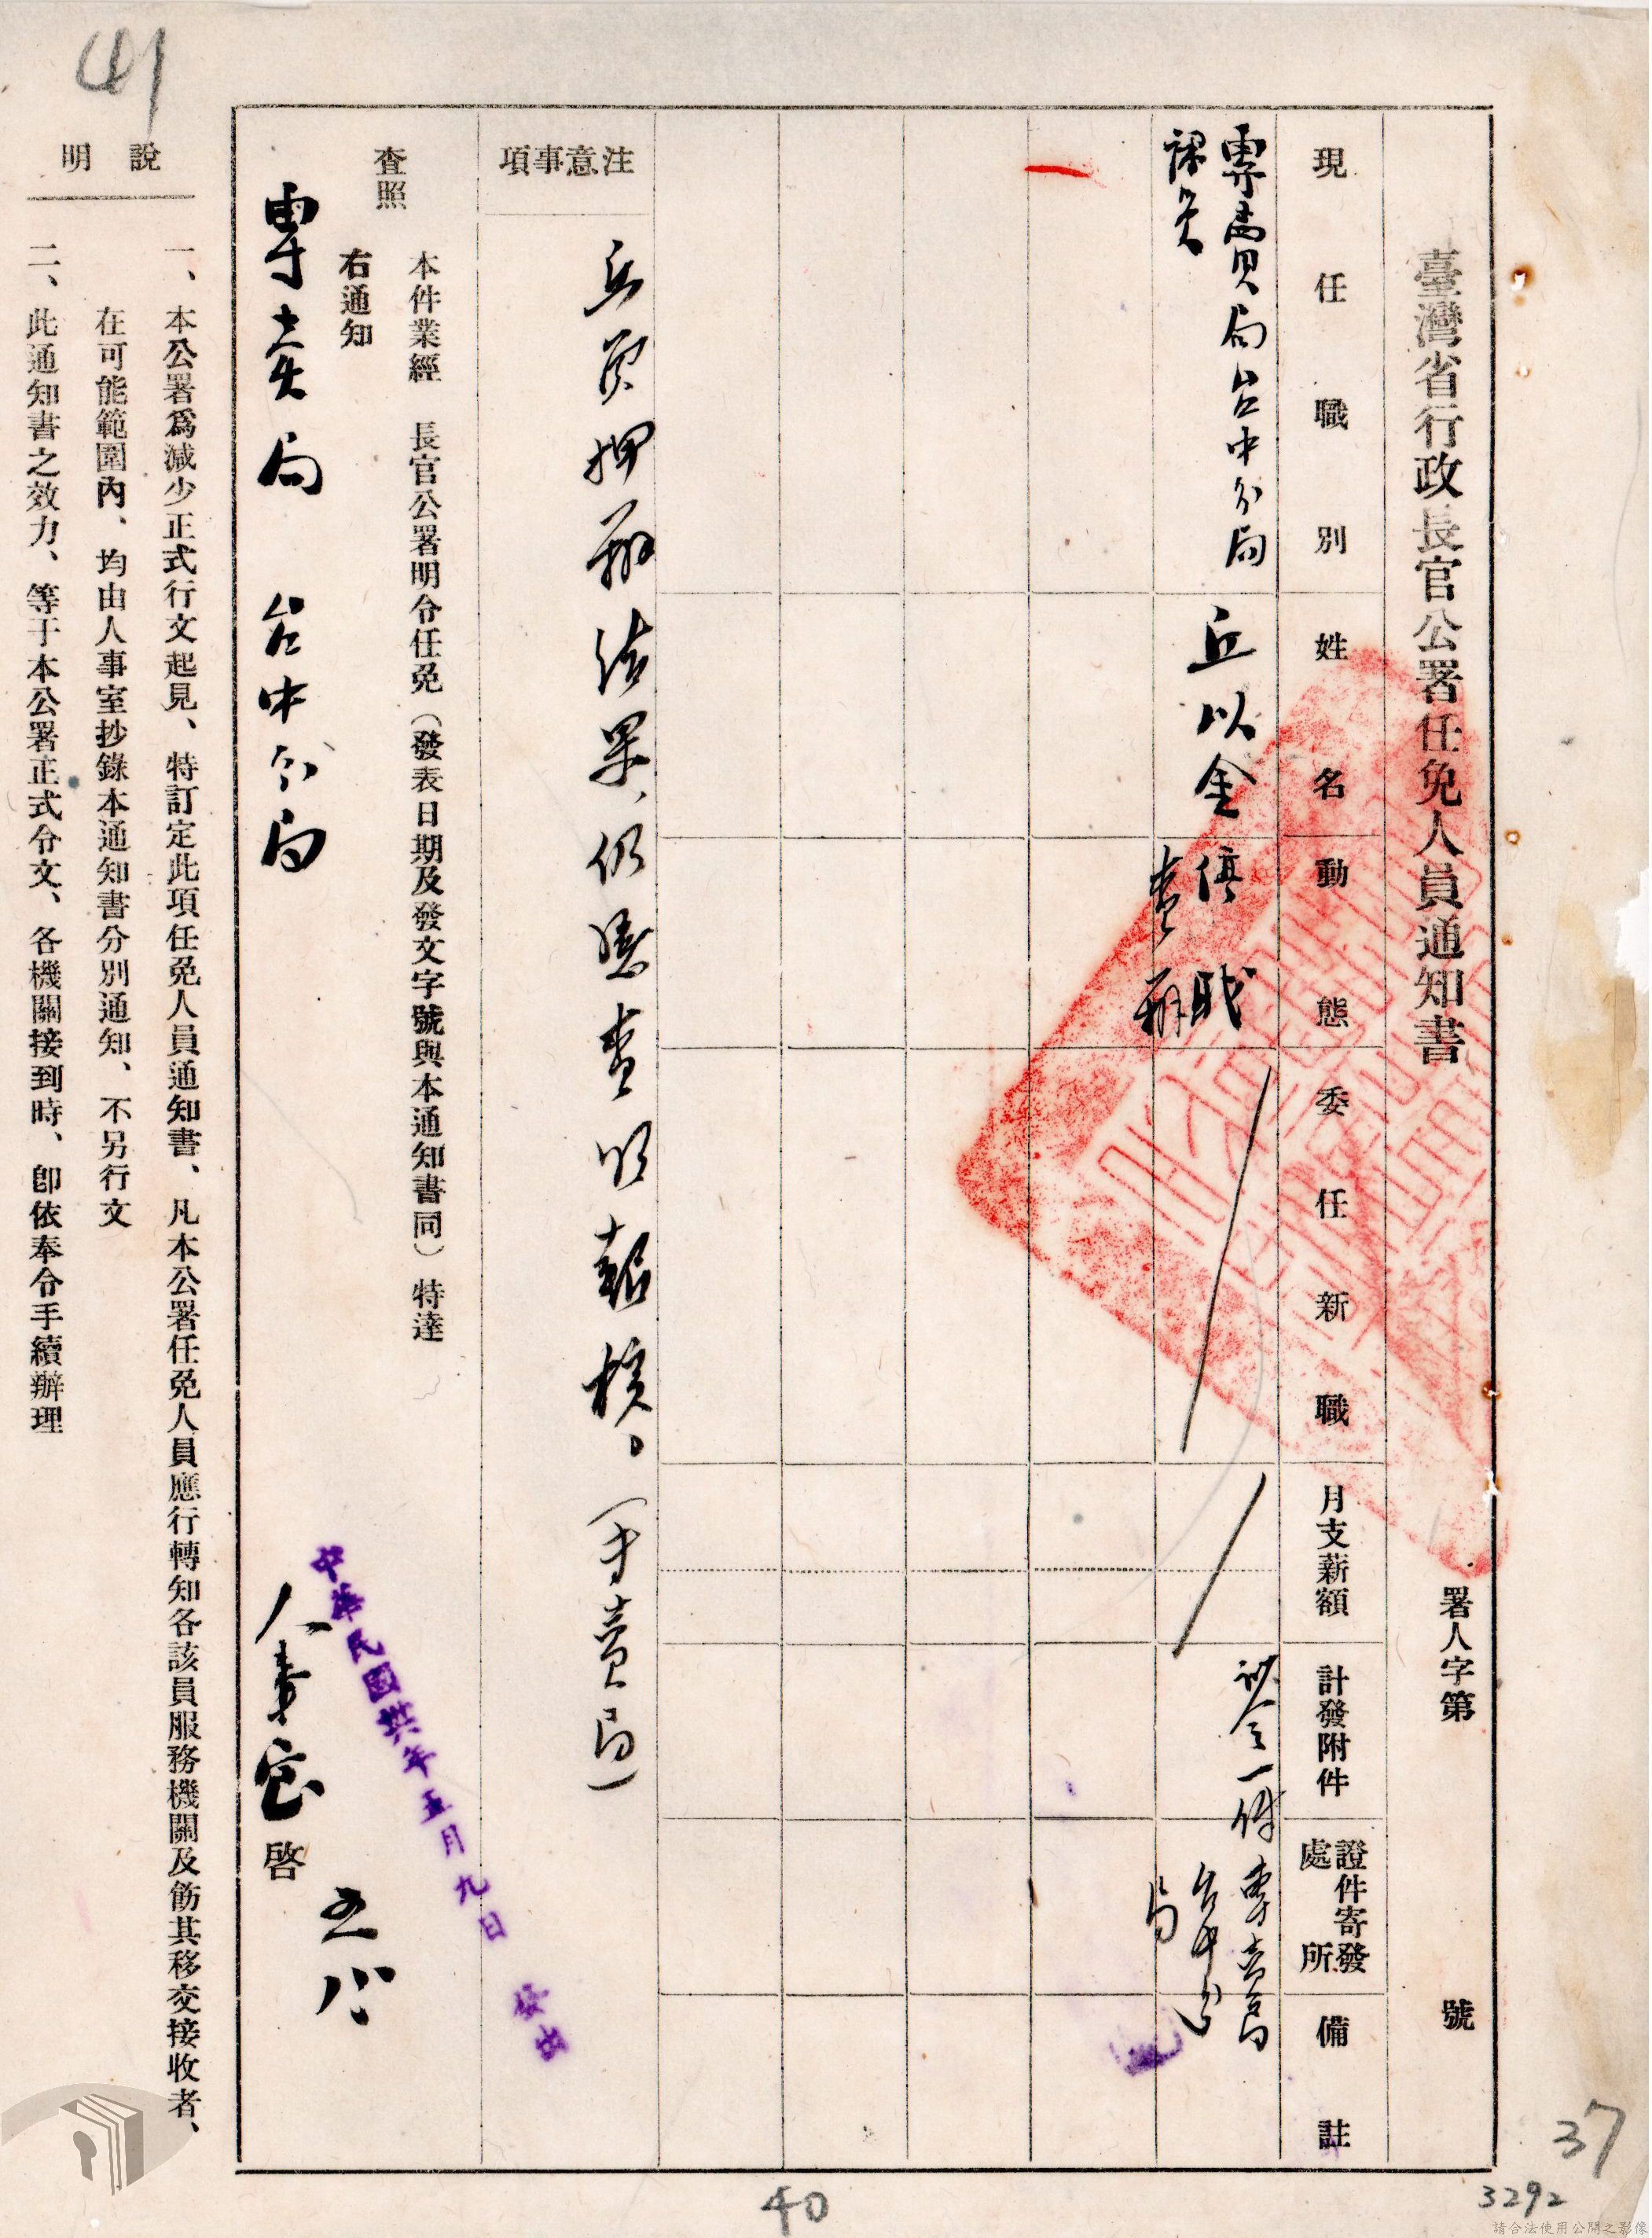 臺灣省行政長官公署任免人員通知書
署人字第 號
現任職別
姓名
動態
委任新職
月支薪額
計發附件
證件寄發處所
備註
專賣局台中分局
課員
丘以金
停職
查辦
訓令一件
專賣局
台中分
局
注意事項
丘員押辦結果、仍應查明報核。（專賣局）
本件業經 長官公署明令任免（發表日期及發文字號與本通知書同）特達
查照
右通知
專賣局 台中分局
人事室啓
中華民國卅六年五月九日 發出
說明
一、本公署爲減少正式行文起見、特訂定此項任免人員通知書、凡本公署任免人員應行轉知各該員服務機關及飭其移交接收者、
在可能範圍內、均由人事室抄錄本通知書分別通知、不另行文
二、此通知書之效力、等于本公署正式令文、各機關接到時、卽依奉令手續辦理
41
37
40
3292
請合法使用公開之影像